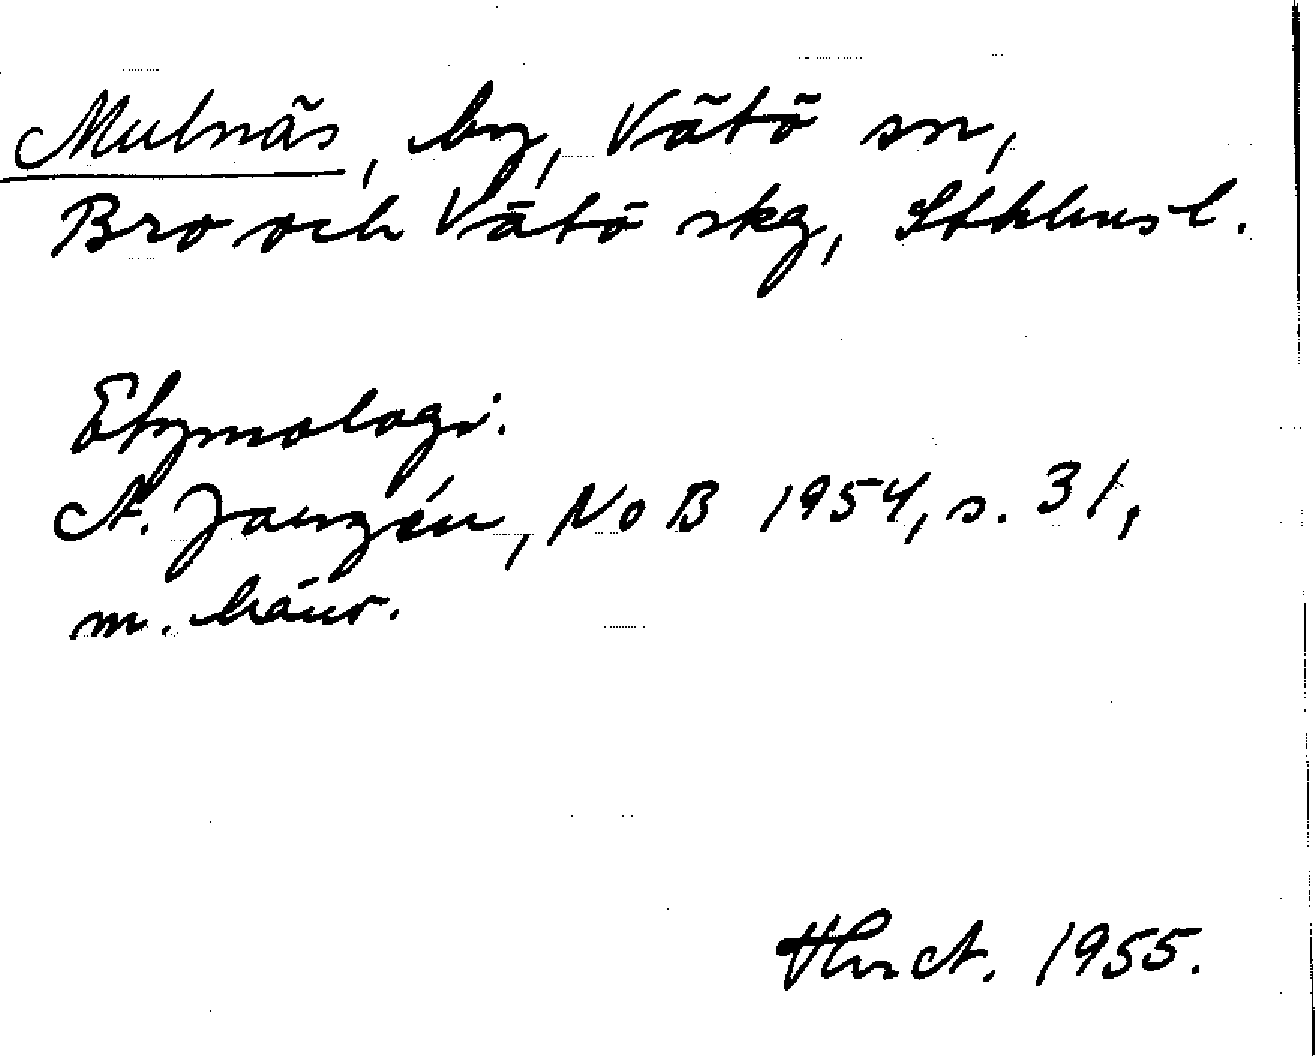 Mulnäs, by, Vätö sn,
Bro och Vätö skg, Sthlms l.
Etymologi:
A. Janzén, NoB 1954, s. 31,
m. hänv.
1955.